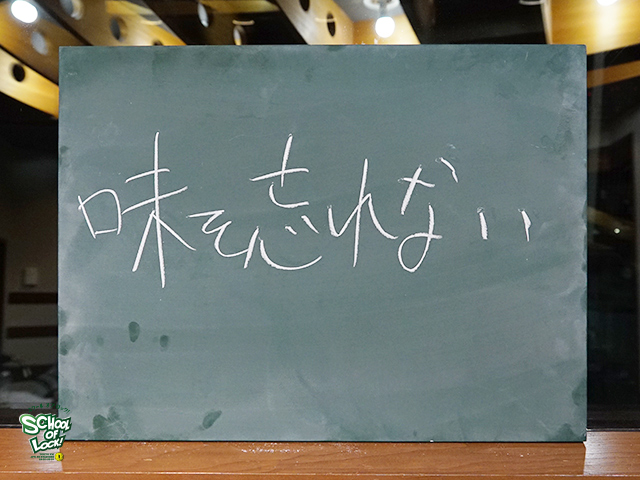 味を忘れない
SCHOOL
OF
LOCK!